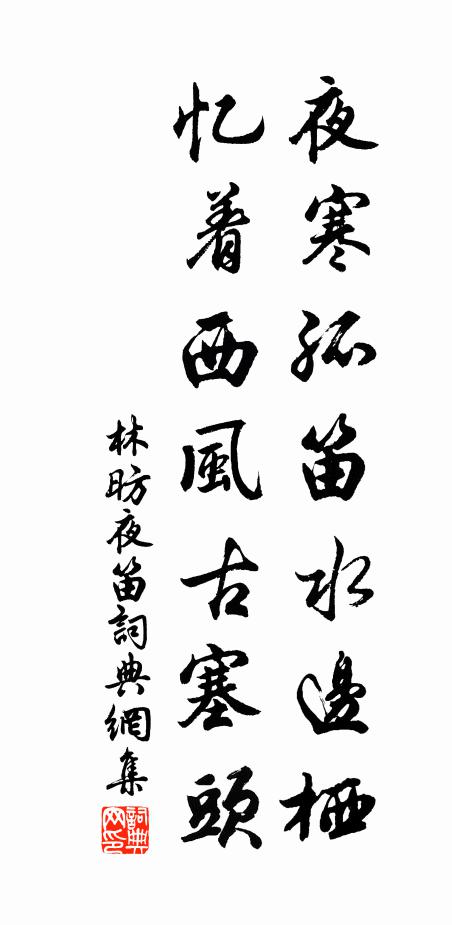 夜寒孤笛水邊栖
忆着西風古塞頭
林昉夜笛詞典網集
詞典網印